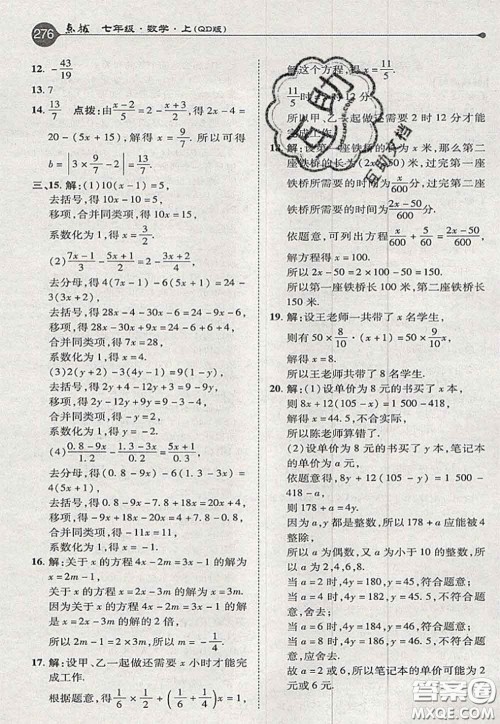 276 点拨 七年级·数学·上(QD版)
12. -43/19
13. 7
14. 13/7 点拨：由(x-2)/5=2-(x+3)/2，得 2x-4=
20-(5x+15)，解得 x=9/7. 所以可得
b=|3×9/7-2|=13/7.
三、15. 解：(1)10(x-1)=5，
去括号，得 10x-10=5，
移项，合并同类项，得 10x=15，
系数化为 1，得 x=3/2.
(2)(7x-1)/3-(5x+1)/2=2-(3x+2)/4，
去分母，得 4(7x-1)-6(5x+1)=24-3(3x+2)，
去括号，得 28x-4-30x-6=24-9x-6，
移项，得 28x-30x+9x=24-6+6+4，
合并同类项，得 7x=28，
系数化为 1，得 x=4.
(3)2(y+2)-3(4y-1)=9(1-y)，
去括号，得 2y+4-12y+3=9-9y，
移项，得 2y-12y+9y=9-3-4，
合并同类项，得 -y=2，
系数化为 1，得 y=-2.
去分母，得 0.8-9x-(1.3-3x)=5x+1，
去括号，得 0.8-9x-1.3+3x=5x+1，
移项，得 -9x+3x-5x=1-0.8+1.3，
合并同类项，得 -11x=
系数化为 1，得 x=
16. 解：关于 x 的方程 4x-2m=3x-1 的解为
x=2m-1，
关于 x 的方程 x=2x-3m 的解为 x=3m.
因为关于 x 的方程 4x-2m=3x-1 的解是 x=
2x-3m 的解的 2 倍，
所以 2m-1=2×3m，所以 m=-1/4.
17. 解：设甲、乙一起做还需要 x 小时才能完
成工作.
根据题意，得 1/6×1/2+(1/6+1/4)x=1，
解这个方程，得 x=11/5，
11/5 时=2 时 12 分，
所以甲、乙一起做还需要 2 时 12 分才能
完成工作.
18. 解：设第一座铁桥的长为 x 米，那么第二
座铁桥的长为(2x-50)米，过完第一座
铁桥所需要的时间为 x/600 分，过完第二座
铁桥所需要的时间为(2x-50)/600 分.
依题意，可列出方程 x/600+5/60=(2x-50)/600，
解得 x=100.
所以 2x-50=2×100-50=150.
所以第一座铁桥长 100 米，第二座铁桥长
150 米.
19. 解：设王老师一共带了 x 名学生，
则有 50×8/10·(x+1)=50×9/10·x，
解得 x=8.
所以王老师一共带了 8 名学生.
20. 解：(1)设单价为 8 元的书买了 x 本，
则 8x+12(105-x)=1 500-418，
解得 x=44.5，不合实际，
所以陈老师算错了.
(2)设单价为 8 元的书买了 y 本，笔记本
的单价为 a 元，
依题意，得 8y+12(105-y)=1 500-
418-a，
解得 4y=178+a.
因为 a，y 都是整数，所以 178+a 应能被 4
整除，
所以 a 为偶数，又 a 为小于 10 的整数，所
以 a 为 2，4，6，8.
当 a=2 时，4y=180，y=45，符合题意；
当 a=4 时，4y=182，y=45.5，不符合题
意，应舍去；
当 a=6 时，4y=184，y=46，符合题意；
当 a=8 时，4y=186，y=46.5，不符合题
意，舍去.
所以 a=2 或 6，所以笔记本的单价可能 2
元或 6 元.
互助
互助文档
答案圈
MXQE.COM